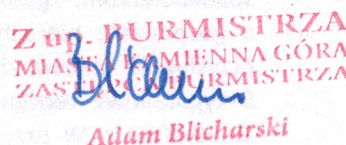 Z up. BURMISTRZA
MIASTA KAMIENNA GÓRA
ZASTĘPCA BURMISTRZA
Adam Blicharski